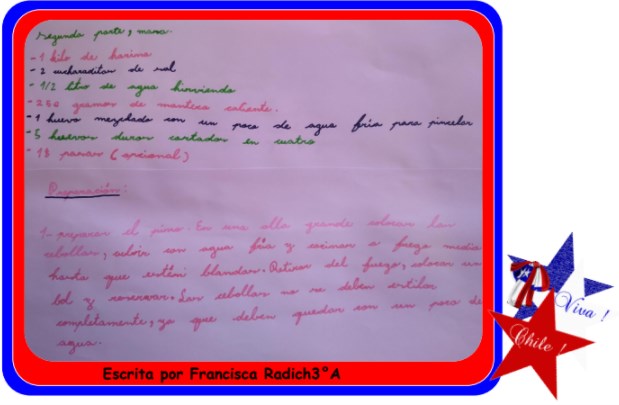 Segunda parte, masa.
- 1 kilo de harina
- 2 cucharaditas de sal
- 1/2 litro de agua hirviendo
- 250 gramos de manteca caliente.
- 1 huevo mezclado con un poco de agua fría para pincelar
- 5 huevos duros cortados en cuatro
- 18 pasas (opcional)
Preparación:
1- preparar el pino. En una olla grande colocar las
cebollas, cubrir con agua fría y cocinar a fuego medio
hasta que estén blandas. Retirar del fuego, colocar un
bol y reservar. Las cebollas no se deben estilar
completamente, ya que deben quedar con un poco de
agua.
Escrita por Francisca Radich3°A
Viva !
Chile !